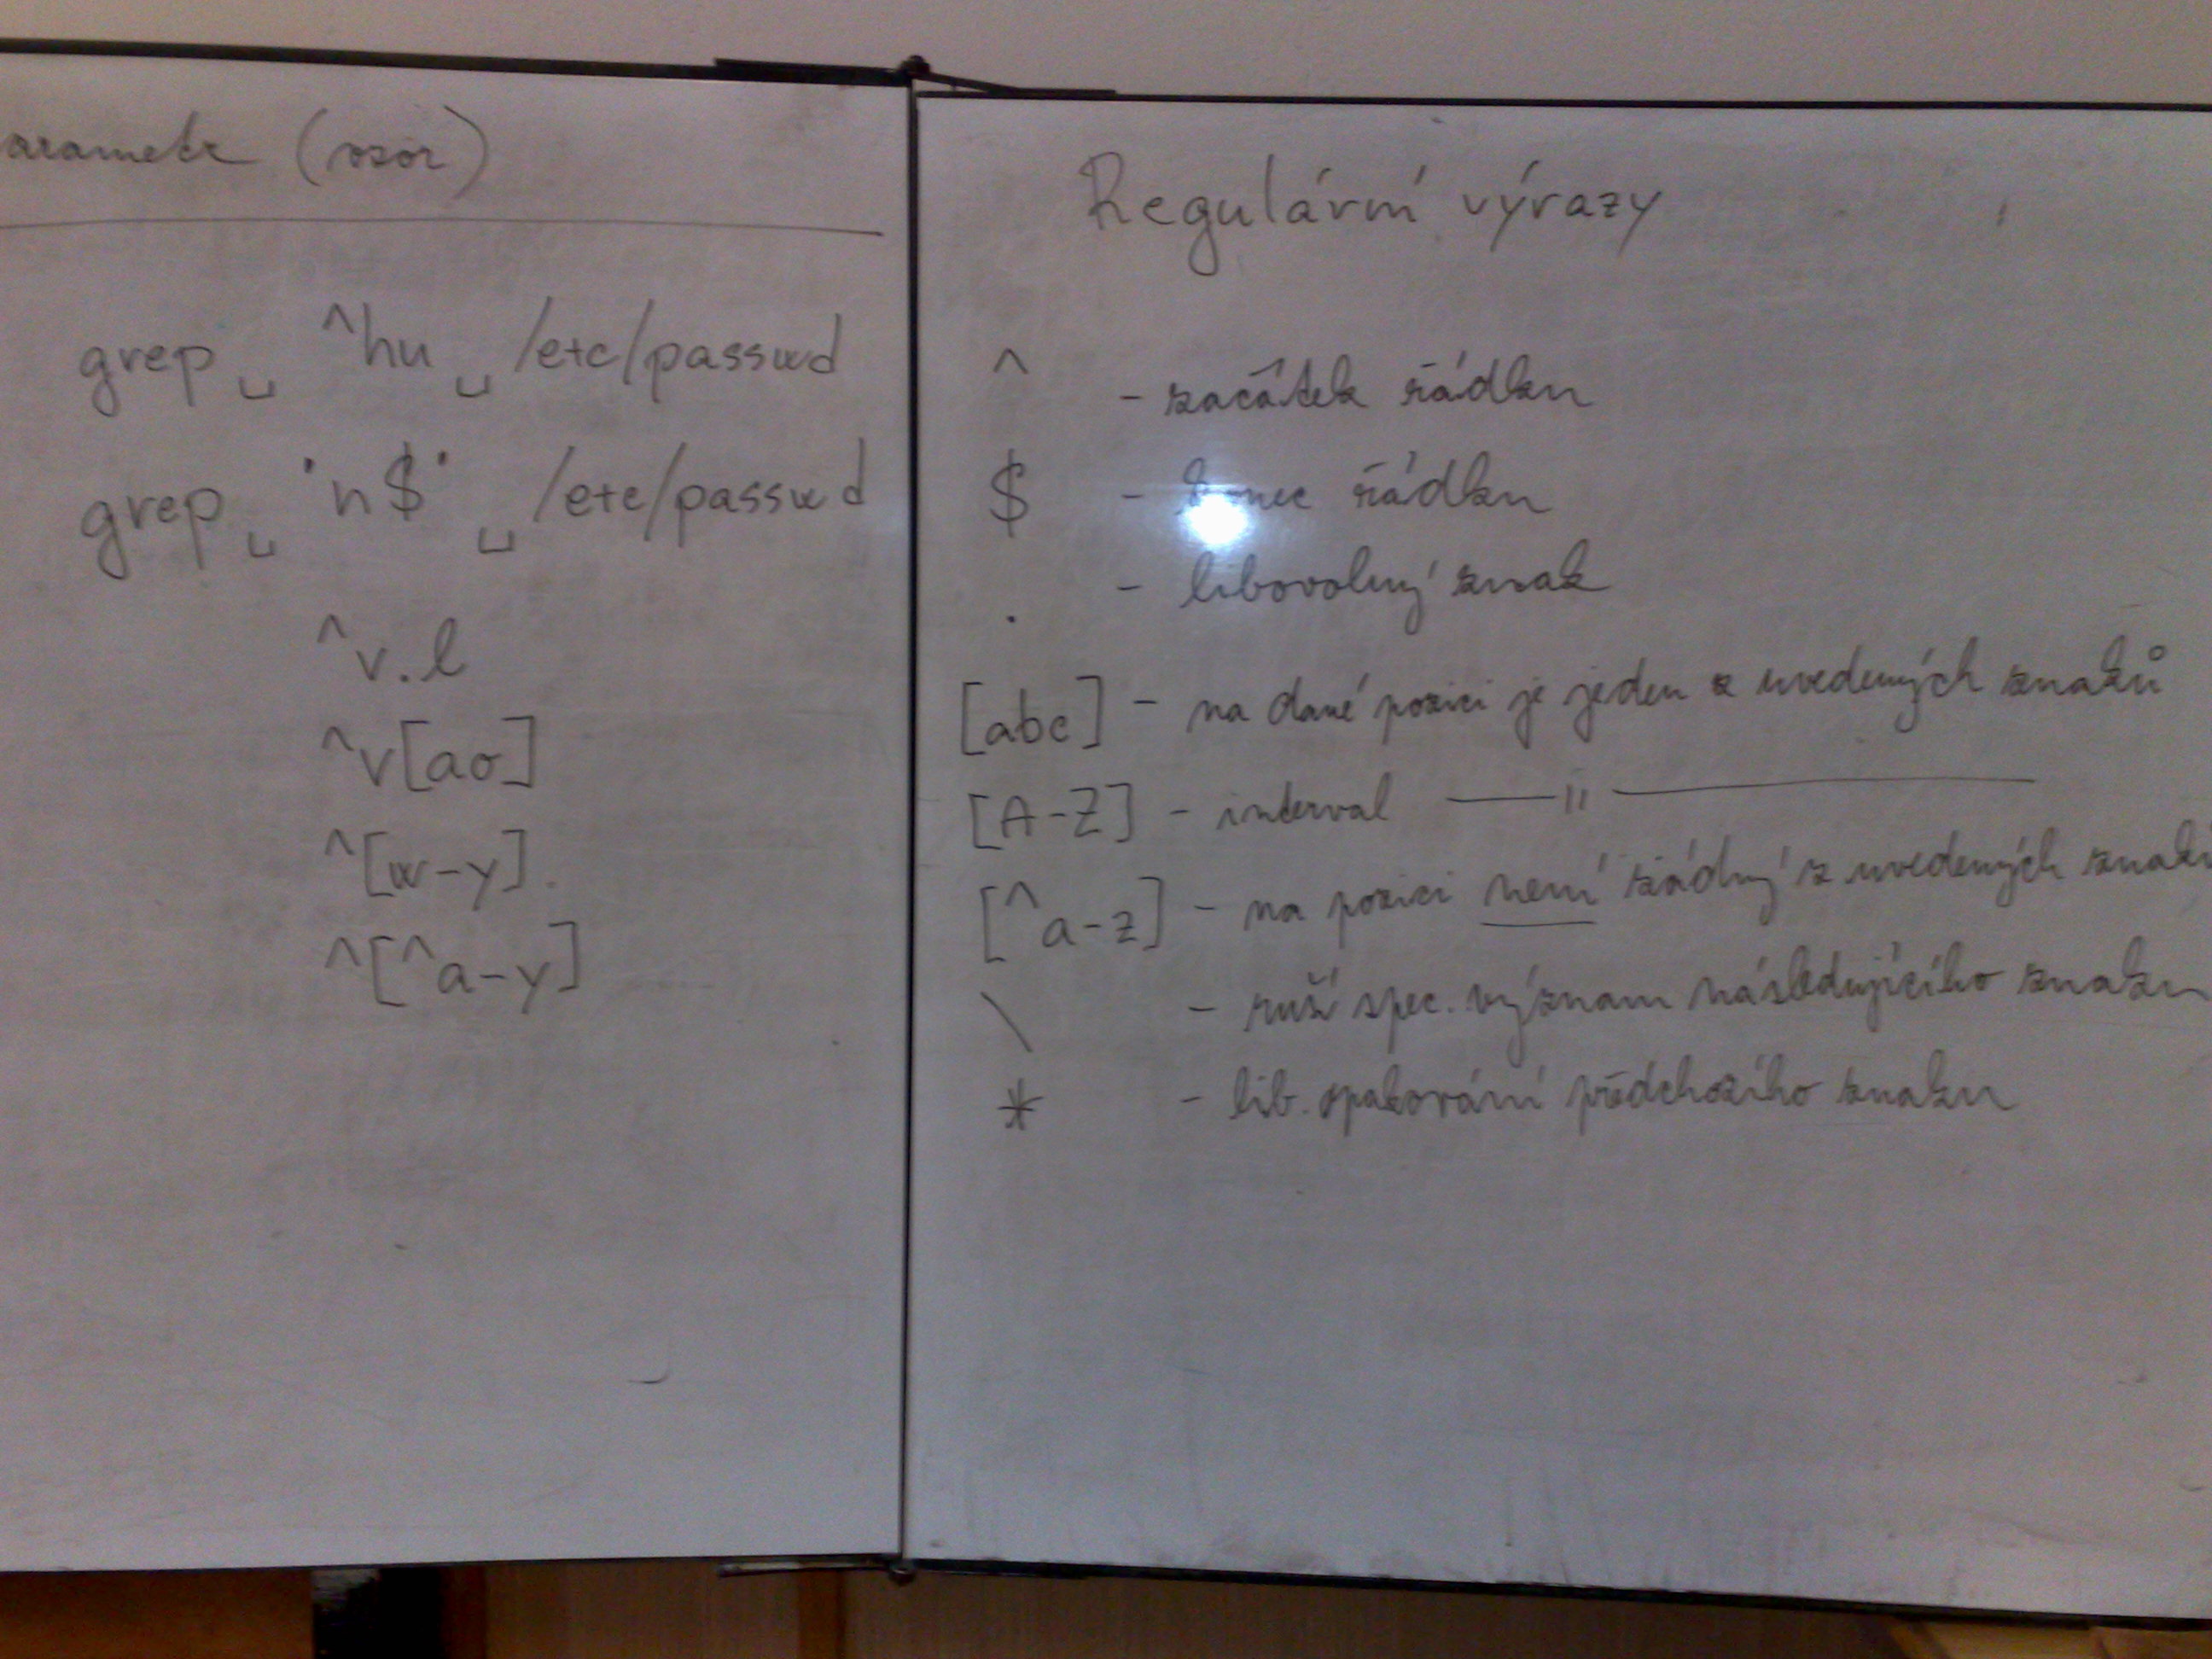 arametr (vzor)
grep ␣ ^hu ␣ /etc/passwd
grep ␣ 'n$' ␣ /etc/passwd
^v.l
^v[ao]
^[w-y].
^[^a-y]
Regulární výrazy
^ - začátek řádku
$ - konec řádku
. - libovolný znak
[abc] - na dané pozici je jeden z uvedených znaků
[A-Z] - interval —— 〃 ——
[^a-z] - na pozici není žádný z uvedených znaků
\ - ruší spec. význam následujícího znaku
* - lib. opakování předchozího znaku